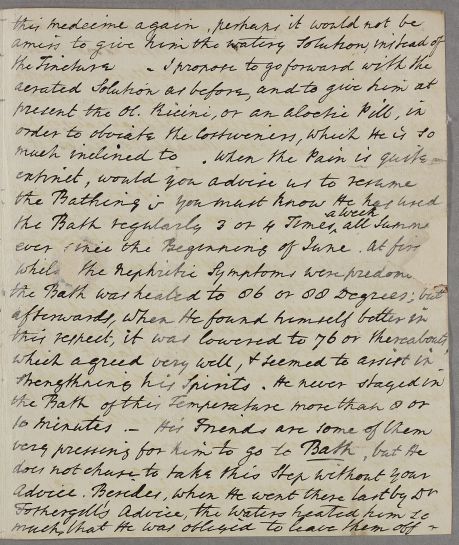 this medecine again, perhaps it would not be
amiss to give him the watery Solution, instead of
the Tincture - I propose to go forward with the
aerated Solution as before, and to give him at
present the Ol. Ricini, or an aloetic Pill, in
order to obviate the Costiveness, which He is so
much inclined to. When the Pain is quite
extinct, would you advise us to resume
the Bathing; you must know He has used
the Bath regularly 3 or 4 Times a week, all Summer
ever since the Beginning of June. At first
while the Nephritic Symptoms were predom
the Bath was heated to 86 or 88 Degrees; but
afterwards, when He found himself better in
this respect, it was lowered to 76 or thereabouts
which agreed very well, & seemed to assist in
strengthning his Spirits. He never stayed in
the Bath of this Temperature more than 8 or
10 minutes - His Friends are some of them
very pressing for him to go to Bath, but He
does not chuse to take this Step without your
Advice. Besides, when He went there last by Dr
Fothergill's Advice, the Waters heated him so
much, that He was obliged to leave them off -